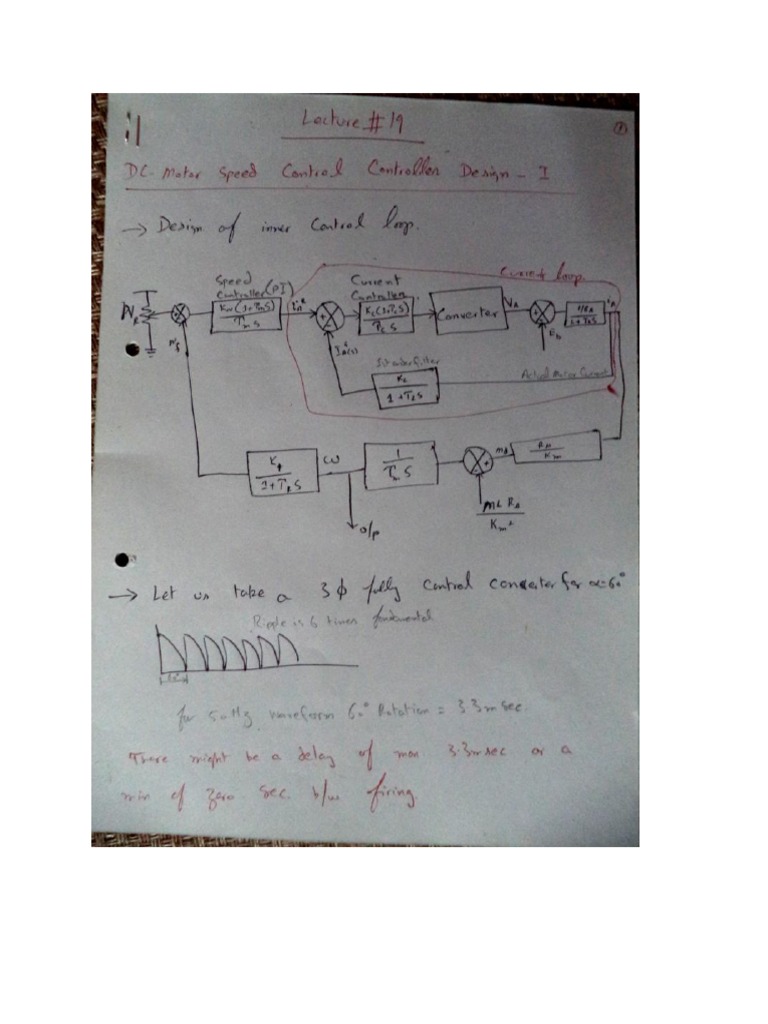 Lecture # 19
①
DC-Motor Speed Control Controller Design - I
→ Design of inner Control loop.
Speed Controller (PI)
Current Controller
Current loop
N_R
K_N(1+T_nS) / T_nS
I_A*
K_c(1+T_cS) / T_cS
Converter
V_A
1/R_A / 1+T_AS
i_A
E_b
N_f
I_A(s)
filter
Actual Motor Current
K_2 / 1+T_2S
K_f / 1+T_fS
ω
1 / T_mS
m_d
R_A / K_m
M_L R_A / K_m²
o/p
→ Let us take a 3φ fully control converter for α=60°
Ripple is 6 times fundamental
for 50Hz waveform 60° Rotation = 3.3msec.
There might be a delay of max 3.3msec or a
min of zero sec. b/w firing.